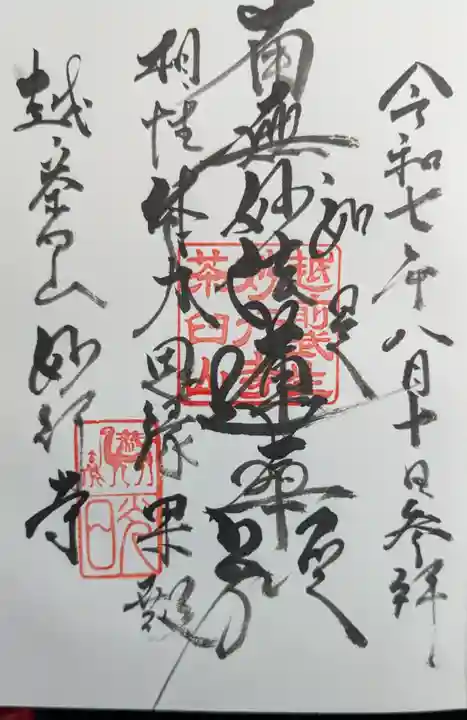 令和七年八月十日参拝
如是
南無妙法蓮華経
相性体力因縁果報
茶臼山妙行寺
越前武生
妙行寺
茶臼山